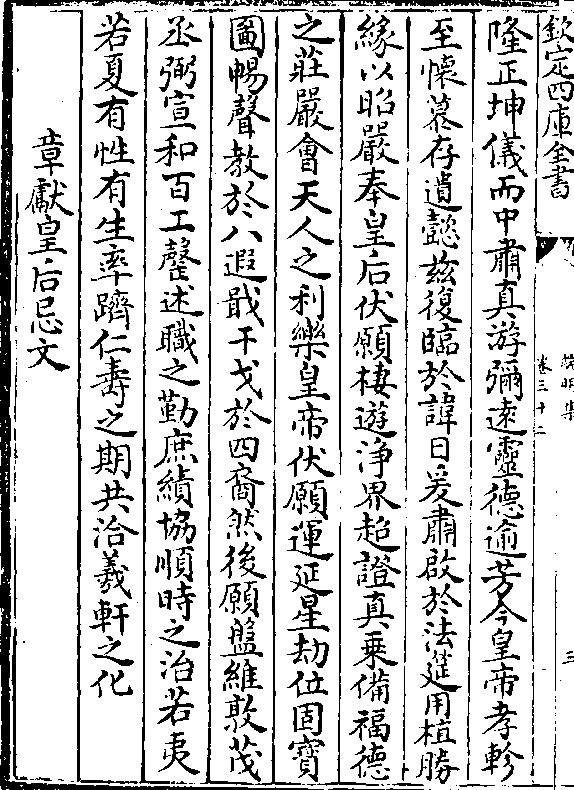 欽定四庫全書
卷三十二
三
隆正坤儀而中肅真游彌遠靈德逾芳今皇帝孝軫
至懷慕存遺懿兹復臨於諱日爰肅啟於法筵用植勝
緣以昭嚴奉皇后伏願棲遊淨界超證真乗備福德
之莊嚴會天人之利樂皇帝伏願運延星劫位固寳
圖暢聲教於八遐戢干戈於四裔然後願盤維敦茂
丞弼宣和百工罄述職之勤庶績協順時之治若夷
若夏有性有生率躋仁壽之期共洽羲軒之化
章獻皇后忌文